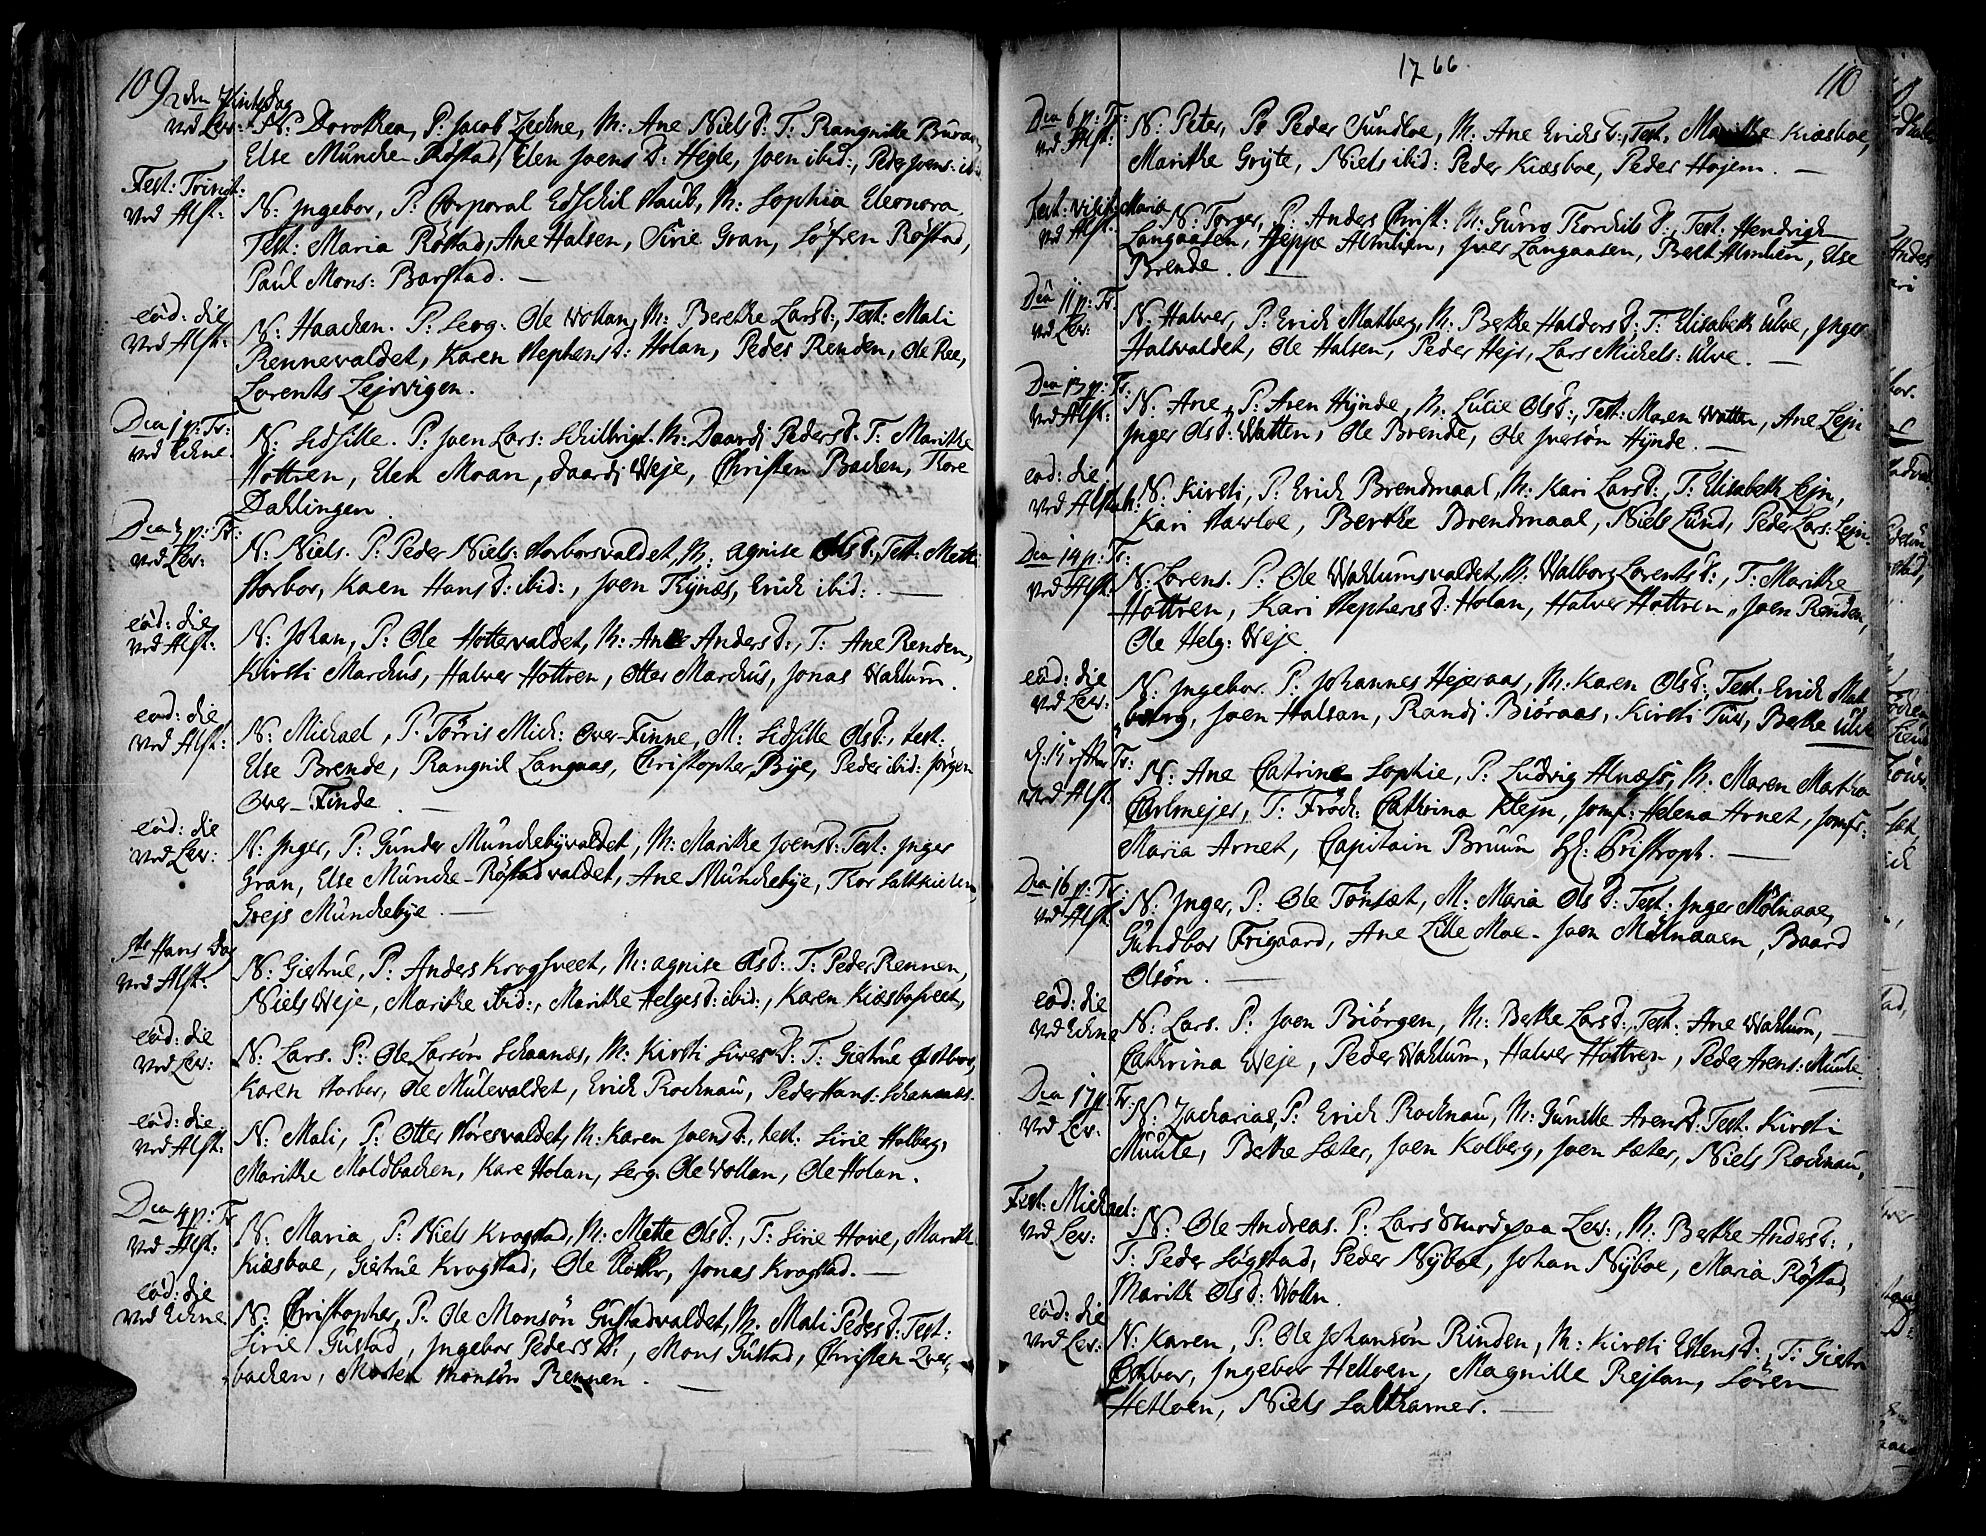 109
2den Pintsdag
ved Lev:
N: Dorothea, P: Jacob Zechne, M: Ane NielsD: T: Rangnille Buvar,
Else Müncke-Röstad, Elen JoensD: Hegle, Joen ibid:, Peder Joens: ibid
Fest: Trinit:
ved Alst:
N: Jngebor, P: Corporal Edschil Staub, M: Sophia Eleonora.
Test: Maria Röstad, Ane Halsen, Sirie Gran, Söfren Röstad,
Paul Mons: Barstad. —
eod: die
ved Alst:
N: Haachen. P: Serg: Ole Wollan, M: Berethe LarsD:, Test: Mali
Rennevaldet, Karen StephensD: Holan, Peder Renden, Ole Ree,
Lorents Lejrvigen.
Dca 1 p: Tr:
ved Echne.
N: Sidsille. P: Joen Lars: Schilbrigt. M: Daardj PedersD. T: Marithe
Hottren, Elen Moan, Daardj Weje, Christen Bachen, Tore
Dahlingen.
Dca 3 p: Tr:
ved Lev:
N: Niels. P: Peder Niels: Storborsvaldet, M: agnise OlsD:, Test: Mette
Storbor, Karen HansD: ibid:, Joen Tÿnæs, Erich ibid: . —
eod: die
ved Alst:
N: Johan, P: Ole Hottervaldet, M: Ane AndersD:, T: Ane Renden,
Kirsti Marchus, Halver Hottren, Otter Marchus, Jonas Wahlum.
eod: die
ved Alst:
N: Michael, P: Törris Mich: Over-Finne, M: Sidsille OlsD:, test:
Else Brende, Rangnil Langaas, Christopher Bÿe, Peder ibid: Jörgen
Over-Finde . —
eod: die
ved Lev:
N: Jnger, P: Gunder Münckebÿvaldet, M: Marithe JoensD: Test: Jnger
Gran, Else Müncke-Röstadvaldet, Ane Münckebÿe, Tor Saltpieten,
Grejs Münckebÿe. —
Sts Hans Dag
ved Alst:
N: Giertrue, P: Anders Krogsveet, M: agnise OlsD: T: Peder Rennen,
Niels Weje, Marithe ibid:, Marithe HelgesD: ibid:, Karen Kiæsbosveet,
eod: die
ved Lev:
N: Lars. P: Ole Larsön Schaanæs, M: Kirsti SiversD: T: Giertrue Östbor,
Karen Storbor, Ole Mülevaldet, Erich Rochnau, Peder Hans: Schaanæs.
eod: die
ved Alst:
N: Mali, P: Otter Störesvaldet, M: Karen JoensD:, test: Sirie Holberg,
Marithe Moldbachen, Kare Holan, Serg: Ole Wollan, Ole Holan.
Dca 4 p: Tr
ved Alst:
N: Maria, P: Niels Krogstad, M: Mette OlsD:, T: Sirie Hove, Marith
Kiæsboe, Giertrue Krogstad, Ole, Jonas Krogstad. —
eod: die
ved Echne
N: Christopher, P: Ole Monsön Gustadvaldet, M: Mali PedersD: Test:
Sirie Gustad, Jngebor PedersD:, Mons Gustad, Christen Qver,
bachen, Morten Monsön Rennen. —
1766
110
Dca 6 p: Tr:
ved Alst:
N: Peter, P: Peder Sundboe, M: Ane ErichsD:, Test: Marithe Kiæsboe,
Marithe Grÿte, Niels ibid: Peder Kiæsboe, Peder Hojem. —
Fest: Visit: Mariæ
ved Alst:
N: Torger, P: Anders Christ: M: Gurro TordhilsD:, Test: Hendrich
Langaasen, Jeppe Almlien, Jver Langaasen, Berit Almlien, Else
Brende.
Dca 11 p: Tr
ved Lev:
N: Halver, P: Erich Matberg, M: Bethe HaldorsD: T: Elisabeth Ulve, Jnger
Halsvaldet, Ole Halsen, Peder Hejr, Lars Michels: Ulve. —
Dca 13 p: Tr.
ved Alst:
N: Ane, P: Aren Hÿnde, M: Lulie OlsD:, Test: Maren Watten, Ane Lejn
Jnger OlsD: Watten, Ole Brende, Ole Jversön Hÿnde. —
eod: die
ved Alstah:
N: Kirsti, P: Erich Brendmaal, M: Kari LarsD:, T: Elisabeth Lejn,
Kari Stavloe, Berethe Brendmaal, Niels Lund, Peder Lars: Lejn.
Dca 14 p: Tr:
ved Alst:
N: Lorens. P: Ole Wahlumsvaldet, M: Walborg LorentsD:, T: Marithe
Hottren, Kari StephensD: Holan, Halver Hottren, Joen Renden,
Ole Helg: Weje.
eod: die
ved Lev:
N: Jngebor. P: Johannes Hejeraas, M: Karen OlsD:, Test: Erich Mat
berg, Joen Halsan, Randj Biöraas, Kirsti Tuv, Bethe Ulve
d: 15 efter Tr:
ved Alst:
N: Ane Catrine Sophie, P: Ludvig Alnæss, M: Maren Martha
Carlmejer, T: Fröch: Cathrina Klejn, Jomf: Helena Arnet, Jomfr:
Maria Arnet, Capitain Bruun Hr: Cristroph. —
Dca 16 p: Tr:
ved Alst:
N: Jnger, P: Ole Tönsæt, M: Maria OlsD: Test: Jnger Mölnaae,
Gundbor Frigaard, Ane Lille Moe- Joen Mölnaaen, Baard
Olsön. —
eod: die
ved Echne
N: Lars. P: Joen Biörgen, M: Bethe LarsD:, Test: Ane Wahlum, —
Cathrina Weje, Peder Wahlum, Halver Hottren, Peder Arens: Muule.
Dca 17 p: Tr:
ved Lev:
N: Zacharias, P: Erich Rochnau, M: Gunille ArensD: Test: Kirsti
Muule, Bethe Sæter, Joen Kolberg, Joen Sæter, Niels Rochnau,
Fest: Michael:
ved Lev:
N: Ole Andreas. P: Lars Smed paa Lev:, M: Bethe AndersD:,
T: Peder Søgstad, Peder Nÿboe, Johan Nÿboe, Maria Röstad,
Marith OlsD: Wolln.
eod: die
ved Lev:
N: Karen, P: Ole Johansön Rinden, M: Kirsti EstensD:, T: Giertr
Östbor, Jngebor Helloen, Magnille Rejtan, Sören
Hetloen, Niels Salthamer. —